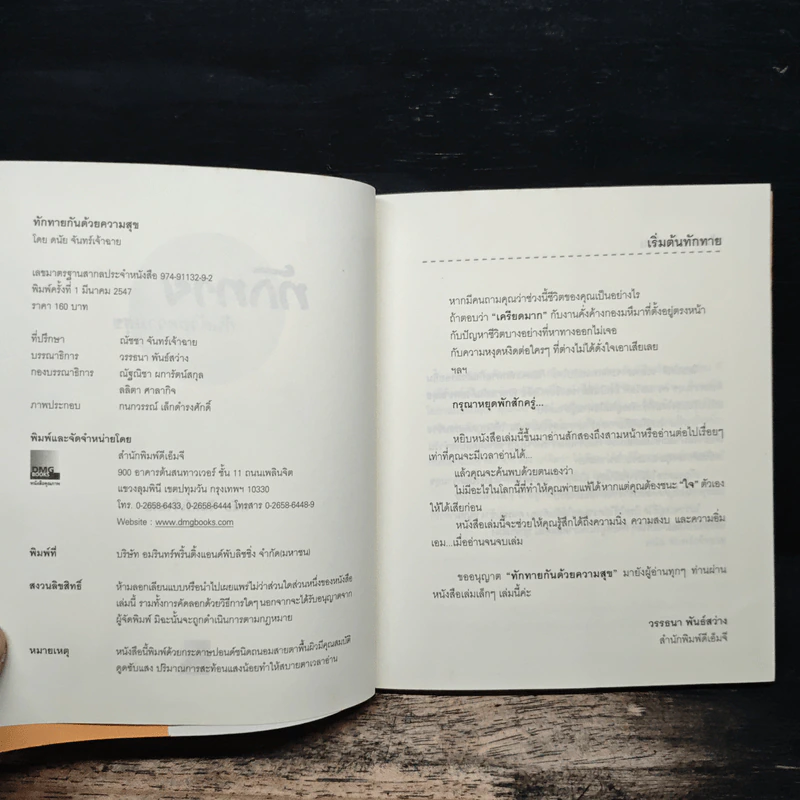 ทักทายกันด้วยความสุข
โดย ดนัย จันทร์เจ้าฉาย
เลขมาตรฐานสากลประจำหนังสือ 974-91132-9-2
พิมพ์ครั้งที่ 1 มีนาคม 2547
ราคา 160 บาท
ที่ปรึกษา ณัชชา จันทร์เจ้าฉาย
บรรณาธิการ วรรธนา พันธ์สว่าง
กองบรรณาธิการ ณัฐณิชา ผการัตน์สกุล
ลลิตา ศาลากิจ
ภาพประกอบ กนกวรรณ์ เล็กดำรงศักดิ์
พิมพ์และจัดจำหน่ายโดย
DMG BOOKS
หนังสือคุณภาพ
สำนักพิมพ์ดีเอ็มจี
900 อาคารต้นสนทาวเวอร์ ชั้น 11 ถนนเพลินจิต
แขวงลุมพินี เขตปทุมวัน กรุงเทพฯ 10330
โทร. 0-2658-6433, 0-2658-6444 โทรสาร 0-2658-6448-9
Website : www.dmgbooks.com
พิมพ์ที่ บริษัท อมรินทร์พริ้นติ้งแอนด์พับลิชชิ่ง จำกัด(มหาชน)
สงวนลิขสิทธิ์ ห้ามลอกเลียนแบบหรือนำไปเผยแพร่ไม่ว่าส่วนใดส่วนหนึ่งของหนังสือ
เล่มนี้ รวมทั้งการคัดลอกด้วยวิธีการใดๆ นอกจากจะได้รับอนุญาตจาก
ผู้จัดพิมพ์ มิฉะนั้นจะถูกดำเนินการตามกฎหมาย
หมายเหตุ หนังสือนี้พิมพ์ด้วยกระดาษปอนด์ชนิดถนอมสายตาพื้นผิวมีคุณสมบัติ
ดูดซับแสง ปริมาณการสะท้อนแสงน้อยทำให้สบายตาเวลาอ่าน
เริ่มต้นทักทาย
หากมีคนถามคุณว่าช่วงนี้ชีวิตของคุณเป็นอย่างไร
ถ้าตอบว่า "เครียดมาก" กับงานคั่งค้างกองมหึมาที่ตั้งอยู่ตรงหน้า
กับปัญหาชีวิตบางอย่างที่หาทางออกไม่เจอ
กับความหงุดหงิดต่อใครๆ ที่ต่างไม่ได้ดั่งใจเอาเสียเลย
ฯลฯ
กรุณาหยุดพักสักครู่...
หยิบหนังสือเล่มนี้ขึ้นมาอ่านสักสองถึงสามหน้าหรืออ่านต่อไปเรื่อยๆ
เท่าที่คุณจะมีเวลาอ่านได้...
แล้วคุณจะค้นพบด้วยตนเองว่า
ไม่มีอะไรในโลกนี้ที่ทำให้คุณพ่ายแพ้ได้หากแต่คุณต้องชนะ "ใจ" ตัวเอง
ให้ได้เสียก่อน
หนังสือเล่มนี้จะช่วยให้คุณรู้สึกได้ถึงความนิ่ง ความสงบ และความอิ่ม
เอม...เมื่ออ่านจนจบเล่ม
ขออนุญาต "ทักทายกันด้วยความสุข" มายังผู้อ่านทุกๆ ท่านผ่าน
หนังสือเล่มเล็กๆ เล่มนี้ค่ะ
วรรธนา พันธ์สว่าง
สำนักพิมพ์ดีเอ็มจี